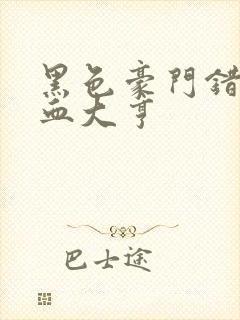 黑色豪門錯
血大亨
巴士途